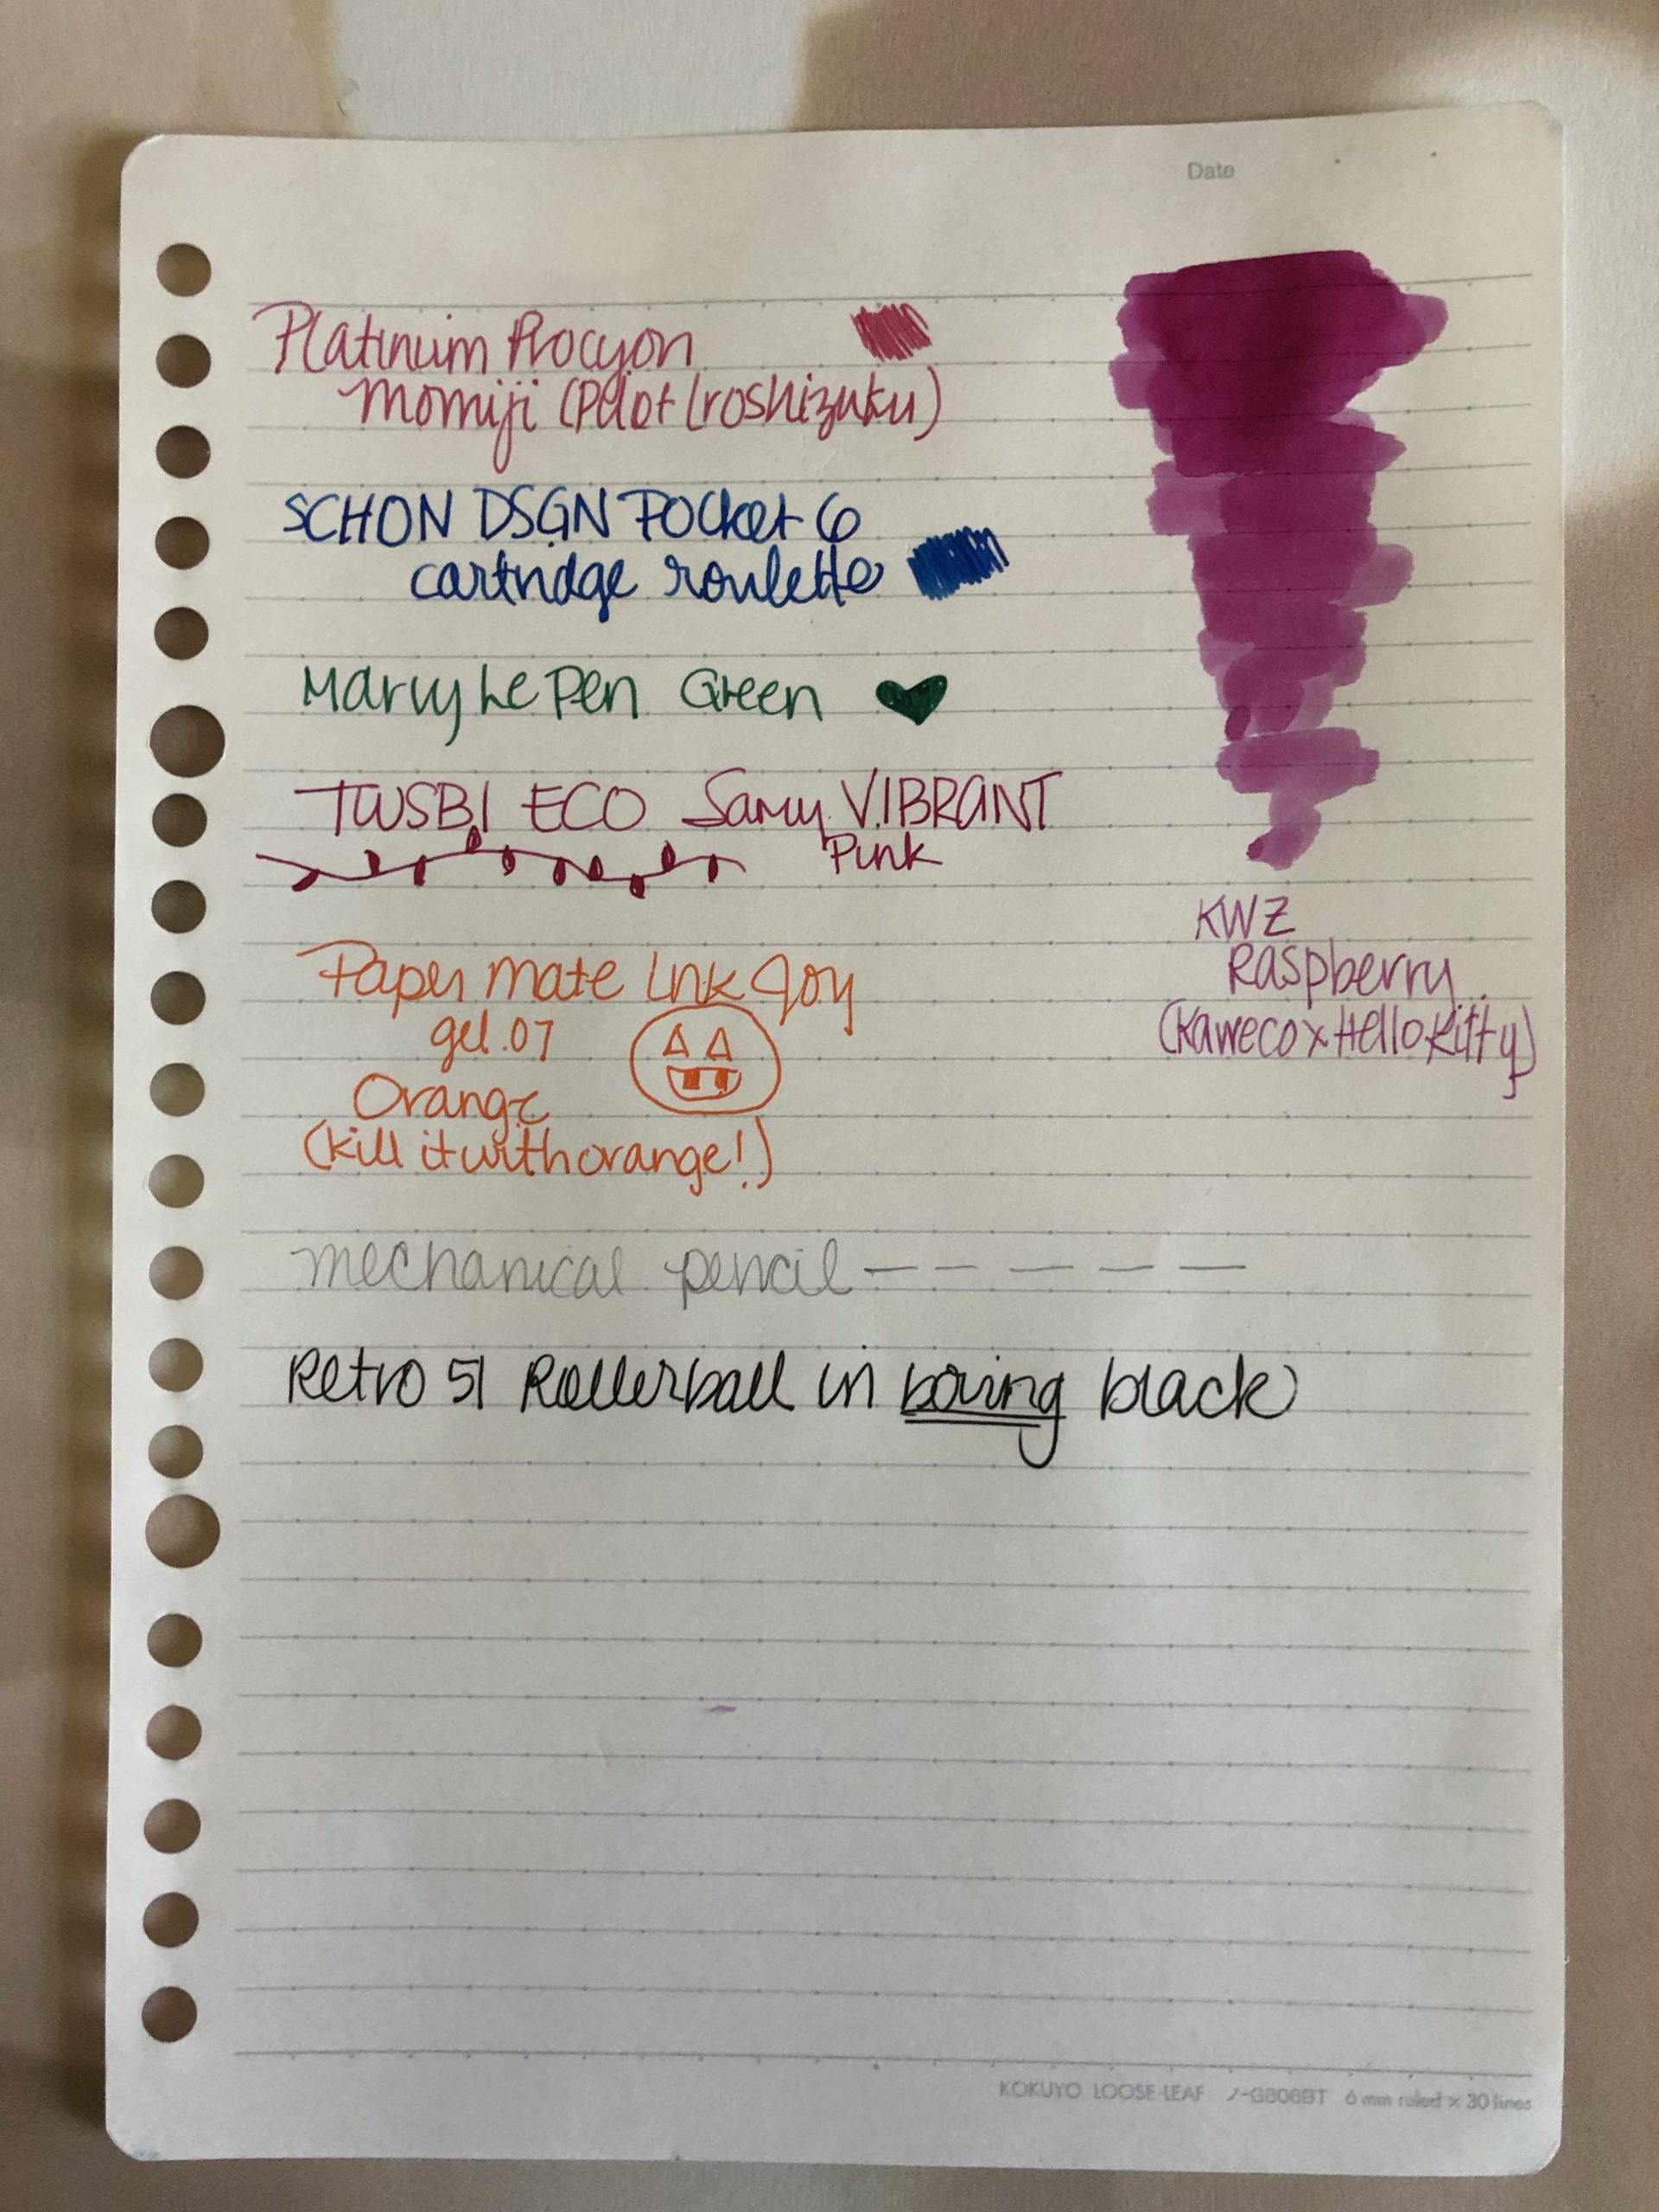 Date
Platinum Procyon
Momiji (Pilot Iroshizuku)
SCHON DSGN Pocket 6
cartridge roulette
Marvy Le Pen Green
TWSBI ECO Samy VIBRANT
Pink
KWZ
Raspberry
(Kaweco x Hello Kitty)
Paper Mate Ink Joy
gel .07
Orange
(kill it with orange!)
mechanical pencil
Retro 51 Rollerball in boring black
KOKUYO LOOSE-LEAF ノ-G808BT 6 mm ruled × 30 lines